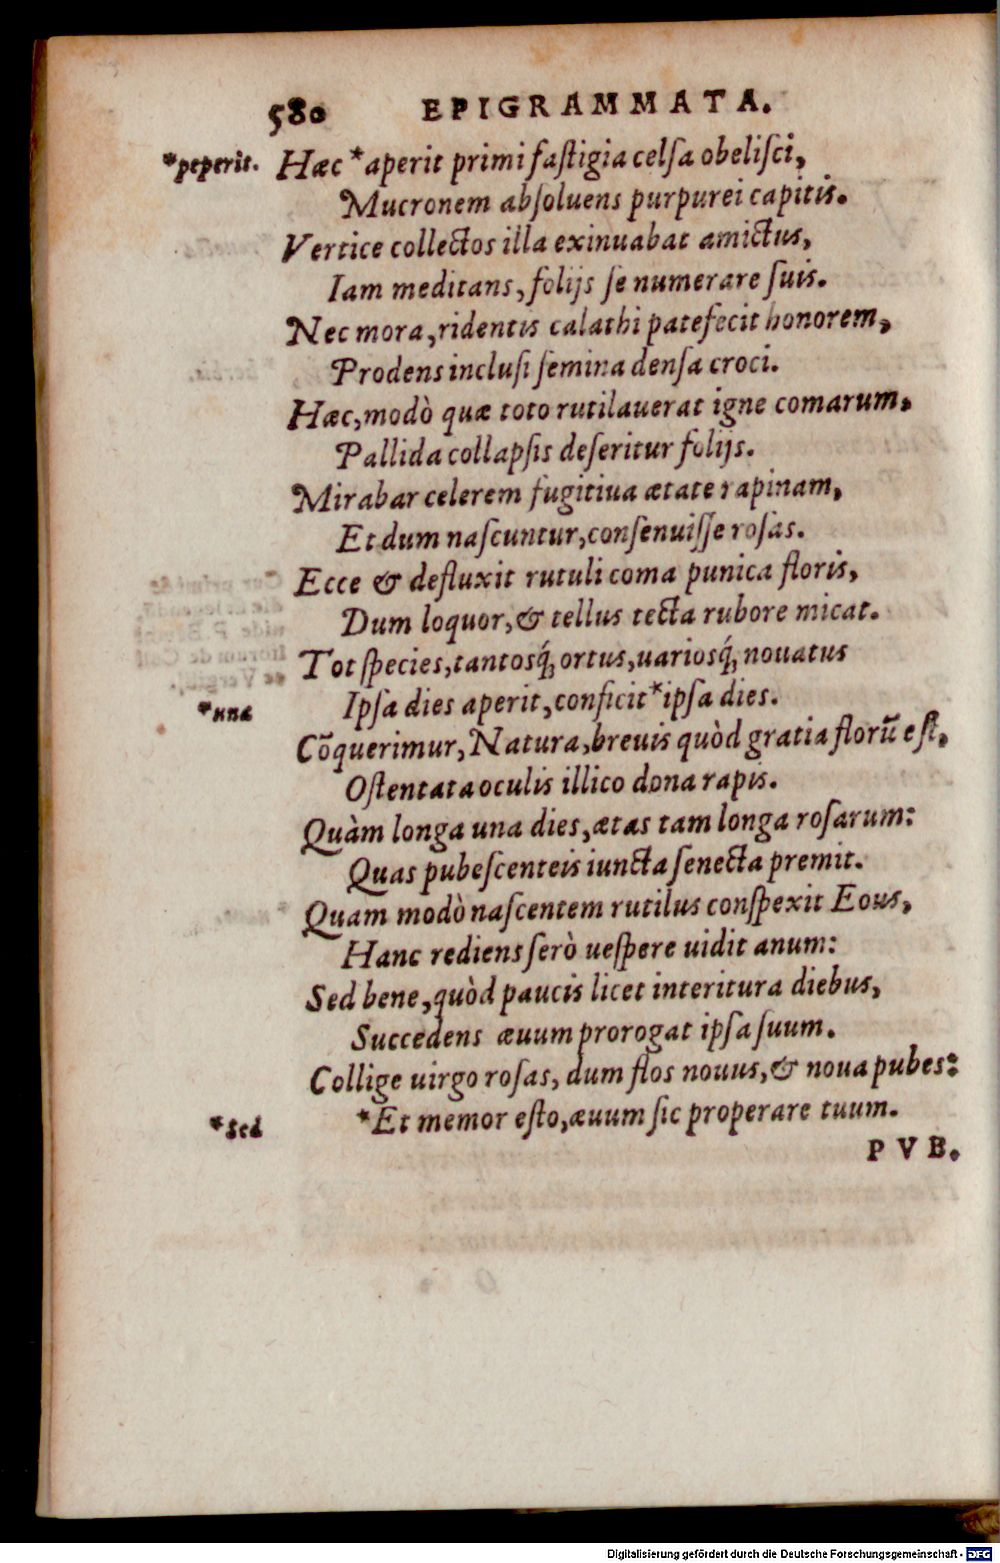 580 EPIGRAMMATA.
*peperit. Hæc *aperit primi faſtigia celſa obeliſci,
Mucronem abſoluens purpurei capitis.
Vertice collectos illa exinuabat amictus,
Iam meditans, folijs ſe numerare ſuis.
Nec mora, ridentis calathi patefecit honorem,
Prodens incluſi ſemina denſa croci.
Hæc, modò quæ toto rutilauerat igne comarum,
Pallida collapſis deſeritur folijs.
Mirabar celerem fugitiua ætate rapinam,
Et dum naſcuntur, conſenuiſſe roſas.
Ecce & defluxit rutuli coma punica floris,
Dum loquor, & tellus tecta rubore micat.
Tot ſpecies, tantosq́; ortus, uariosq́; nouatus
*una Ipſa dies aperit, conficit *ipſa dies.
Cōquerimur, Natura, breuis quòd gratia florū eſt,
Oſtentata oculis illico dona rapis.
Quàm longa una dies, ætas tam longa roſarum:
Quas pubeſcenteis iuncta ſenecta premit.
Quam modò naſcentem rutilus conſpexit Eous,
Hanc rediens ſerò ueſpere uidit anum:
Sed bene, quòd paucis licet interitura diebus,
Succedens æuum prorogat ipſa ſuum.
Collige uirgo roſas, dum flos nouus, & noua pubes:
*Sed *Et memor eſto, æuum ſic properare tuum.
PVB.
Digitalisierung gefördert durch die Deutsche Forschungsgemeinschaft - DFG